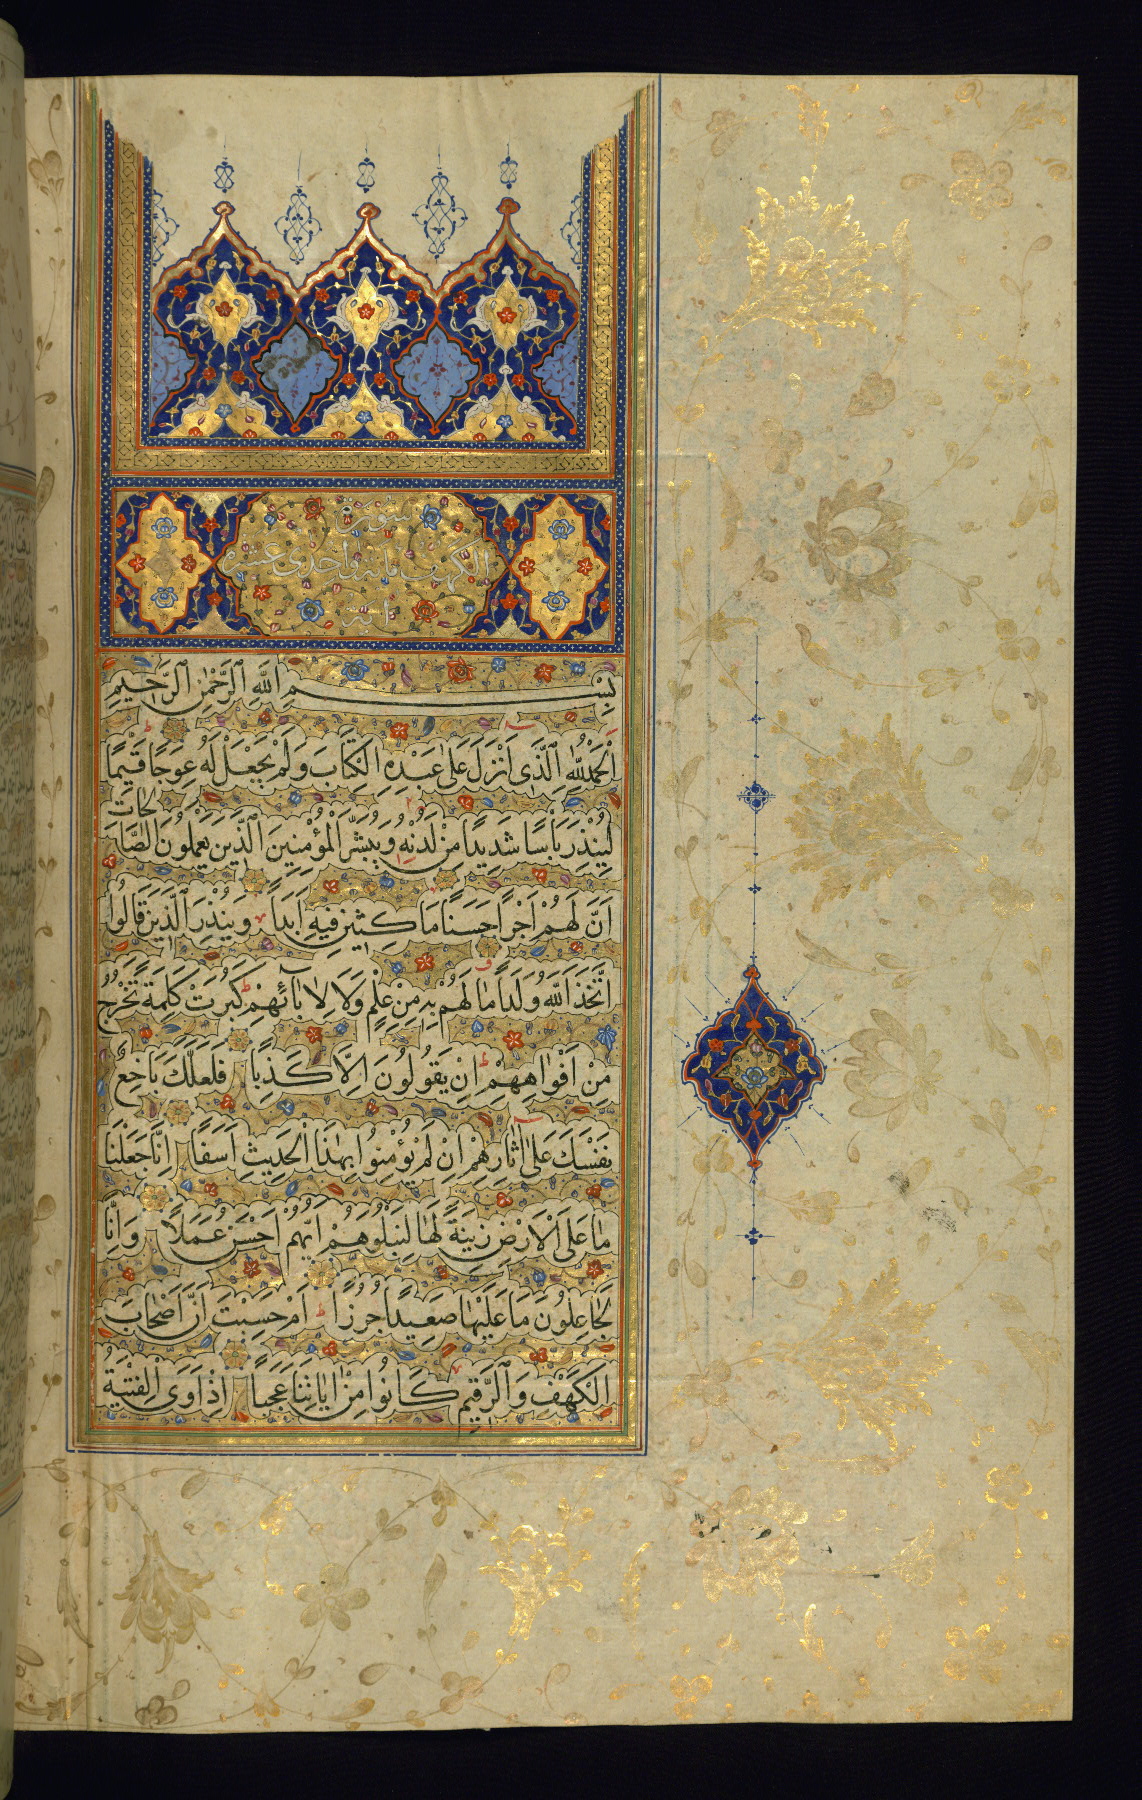 سورة
الكهف مائة واحدى عشر
اية
بِسْمِ اللَّهِ الرَّحْمٰنِ الرَّحِيمِ
اَلْحَمْدُ لِلّٰهِ الَّذَى اَنْزَلَ عَلٰى عَبْدِهِ الْكِتَابَ وَلَمْ يَجْعَلْ لَهُ عِوَجًا قَيِّمًا
لِيُنْذِرَ بَأْسًا شَدِيدًا مِنْ لَدُنْهُ وَيُبَشِّرَ الْمُؤْمِنِينَ الَّذِينَ يَعْمَلُونَ الصَّالِحَاتِ
اَنَّ لَهُمْ اَجْرًا حَسَنًا مَاكِثِينَ فِيهِ اَبَدًا وَيُنْذِرَ الَّذِينَ قَالُوا
اتَّخَذَ اللَّهُ وَلَدًا مَا لَهُمْ بِهِ مِنْ عِلْمٍ وَلَا لِاٰبَائِهِمْ كَبُرَتْ كَلِمَةً تَخْرُجُ
مِنْ اَفْوَاهِهِمْ اِنْ يَقُولُونَ اِلَّا كَذِبًا فَلَعَلَّكَ بَاخِعٌ
نَفْسَكَ عَلٰى اٰثَارِهِمْ اِنْ لَمْ يُؤْمِنُوا بِهٰذَا الْحَدِيثِ اَسَفًا اِنَّا جَعَلْنَا
مَا عَلَى الْاَرْضِ زِينَةً لَهَا لِنَبْلُوَهُمْ اَيُّهُمْ اَحْسَنُ عَمَلًا وَاِنَّا
لَجَاعِلُونَ مَا عَلَيْهَا صَعِيدًا جُرُزًا اَمْ حَسِبْتَ اَنَّ اَصْحَابَ
الْكَهْفِ وَالرَّقِيمِ كَانُوا مِنْ اٰيَاتِنَا عَجَبًا اِذْ اَوَى الْفِتْيَةُ